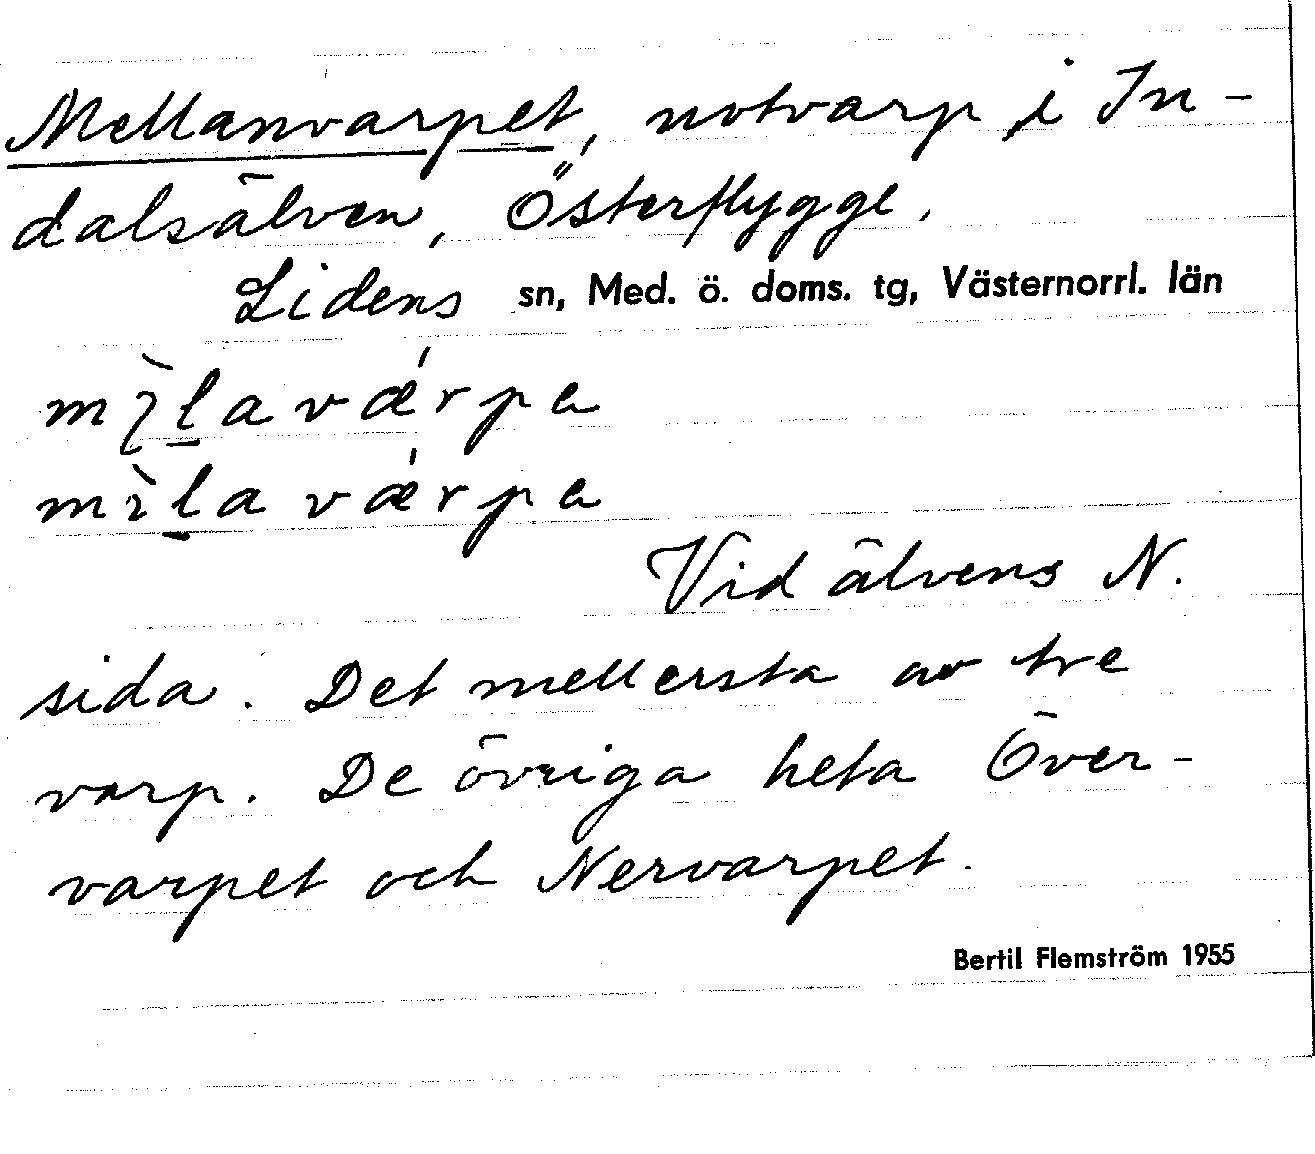 Mellanvarpet, notvarp i In-
dalsälven, Österflygge.
Lidens sn, Med. ö. doms. tg, Västernorrl. län
mìlavǽrpa
mìlavǽrpa
Vid älvens N.
sida. Det mellersta av tre
varp. De övriga heta Över-
varpet och Nervarpet.
Bertil Flemström 1955